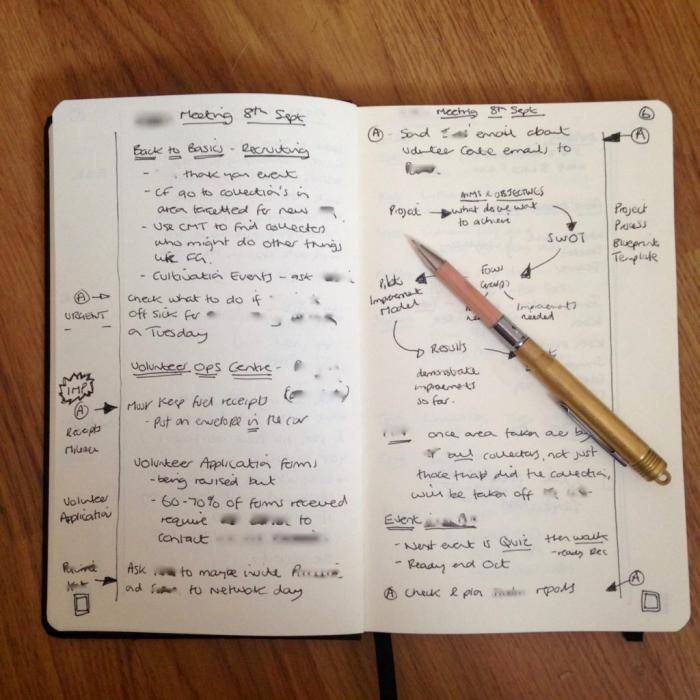 Meeting 8th Sept
Back to Basics - Recruiting
- thank you event
- CF go to collection's in
area targetted for new
- Use CMT to find collectors
who might do other things
like FG.
- Cultivation Events - ask
A
URGENT
Check what to do if
off sick for
a Tuesday
Volunteer Ops Centre -
IMP
A
Receipts
Mileage
Must keep fuel receipts
- Put an envelope in the car
Volunteer Application forms
- being revised but
- 60-70% of forms received
require to
contact
Volunteer
Application
Ask to maybe invite
and to Network day
Meeting 8th Sept
6
A - Send email about
volunteer emails to
A
AIMS & OBJECTIVES
Project what do we want
to achieve
SWOT
Focus
Groups
Improvements
needed
Pilot
Improvement
Model
Results
demonstrate
improvements
so far.
Project
Process
Blueprint
Template
once area taken over by
but collectors, not just
those that did the collection,
will be taken off
Event
- Next event is Quiz then walk
- ready Dec
- Ready end Oct
A Check & plan reports
A